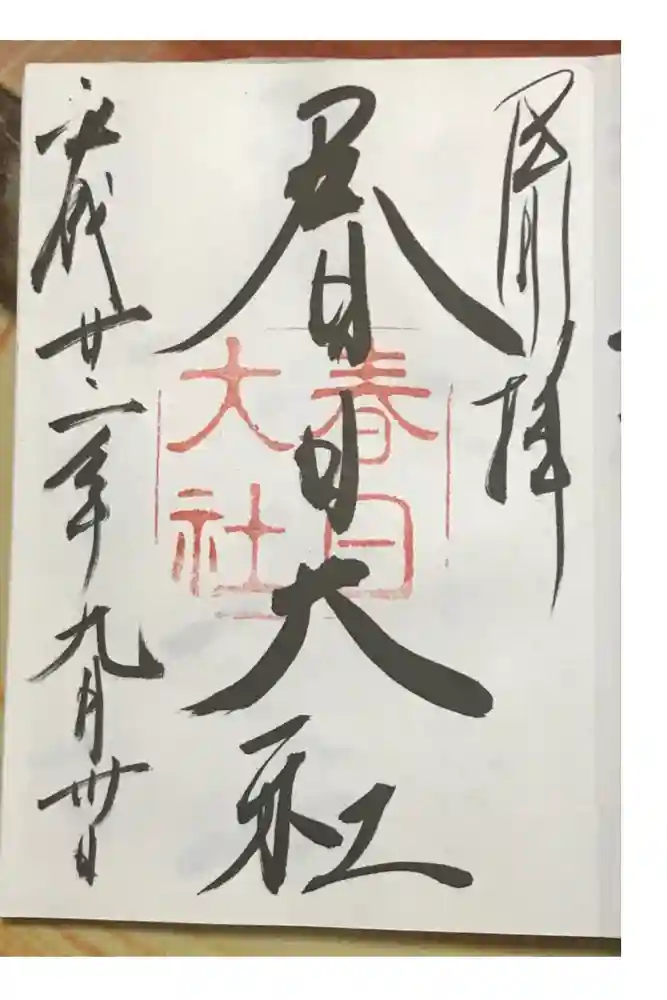 拝
春日大社
春日
大社
平成廿二年九月卅日